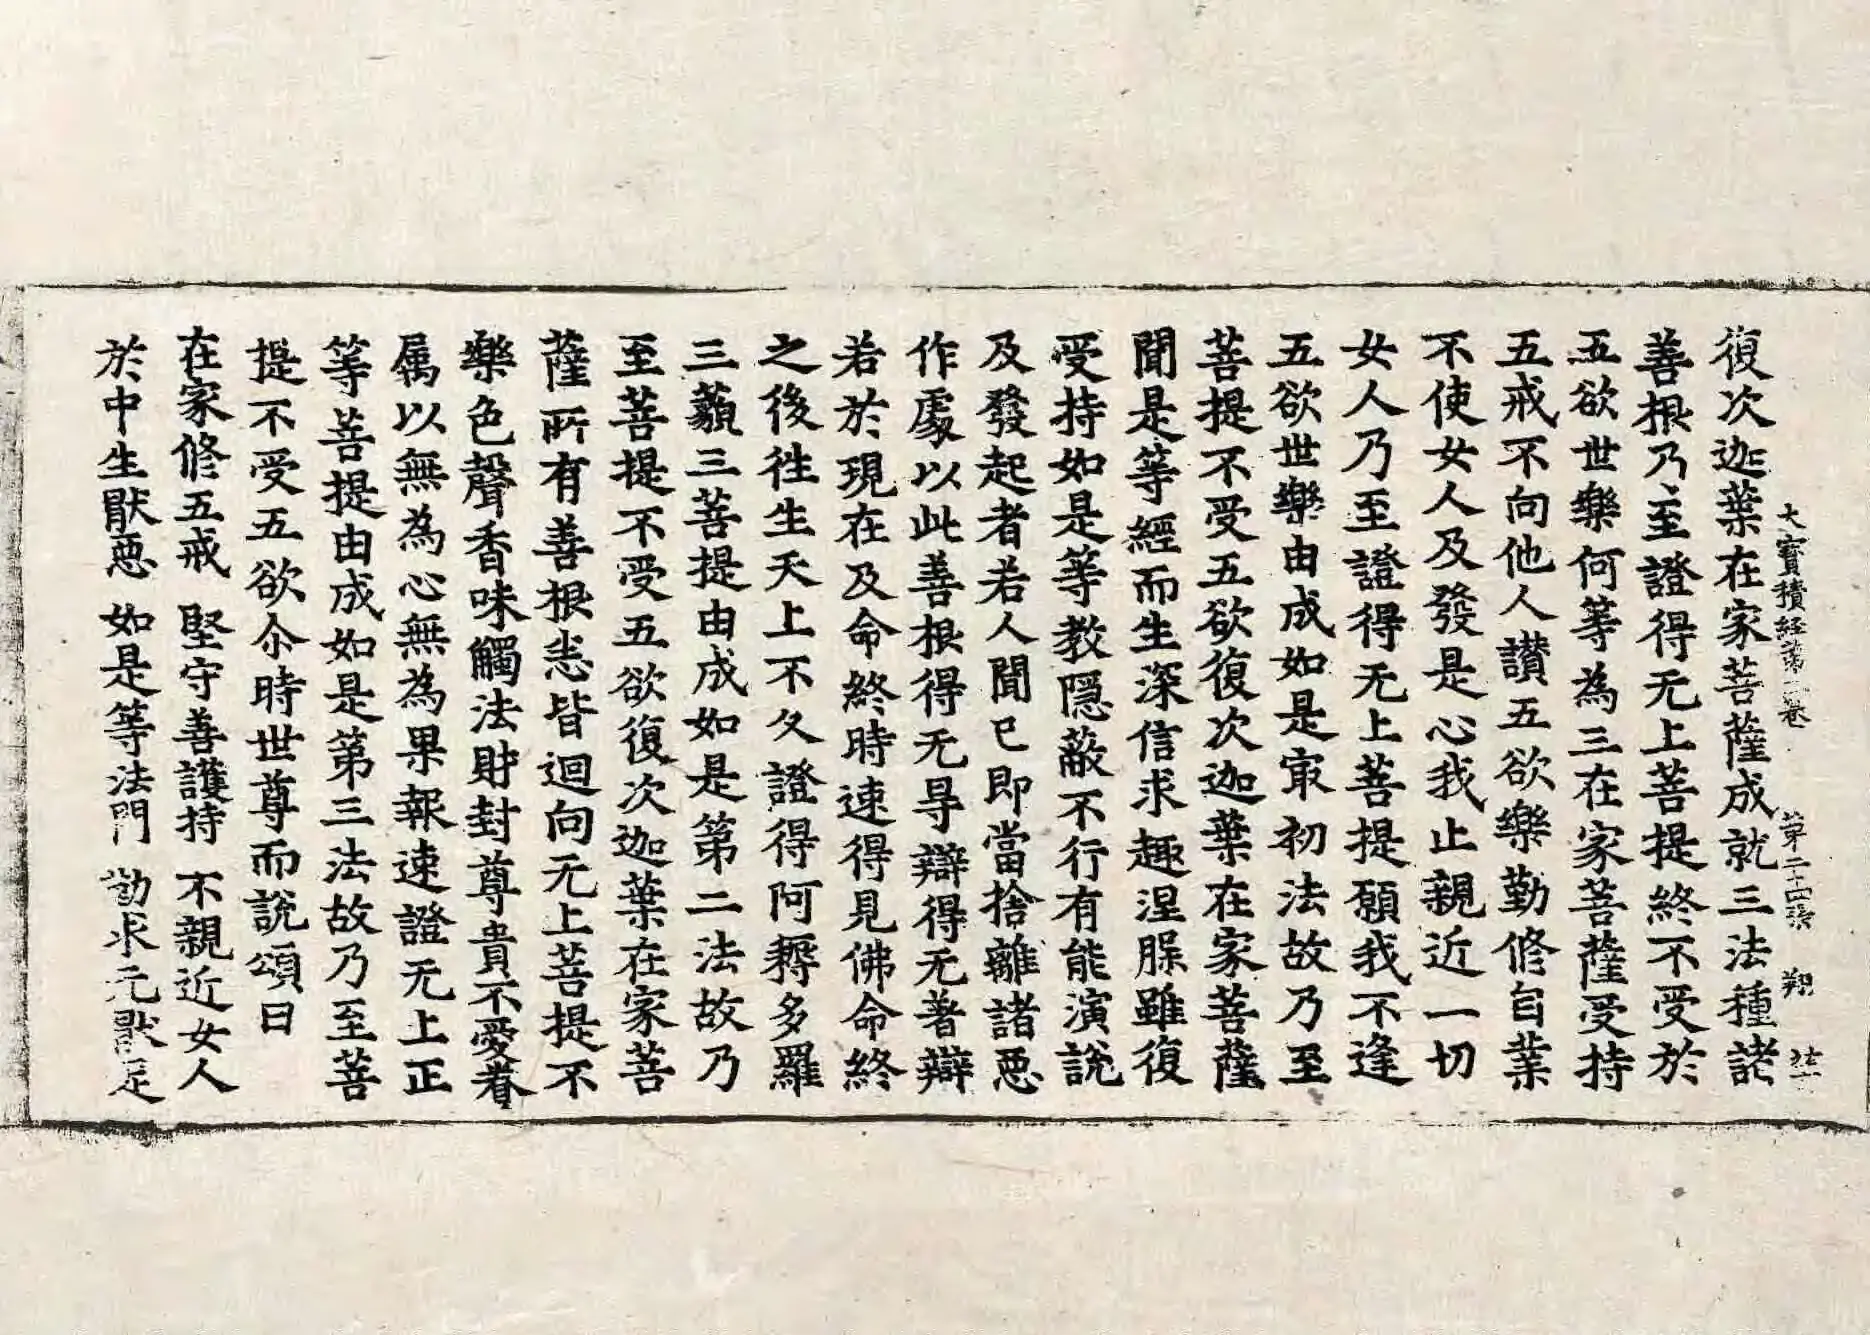 大寶積經第二卷 第二十四張 翔
復次迦葉在家菩薩成就三法種諸
善根乃至證得无上菩提終不受於
五欲世樂何等為三在家菩薩受持
五戒不向他人讃五欲樂勤修自業
不使女人及發是心我止親近一切
女人乃至證得无上菩提願我不逢
五欲世樂由成如是㝡初法故乃至
菩提不受五欲復次迦葉在家菩薩
聞是等經而生深信求趣涅槃雖復
受持如是等教隱蔽不行有能演說
及發起者若人聞已即當捨離諸惡
作處以此善根得无㝵辯得无著辯
若於現在及命終時速得見佛命終
之後往生天上不久證得阿耨多羅
三藐三菩提由成如是第二法故乃
至菩提不受五欲復次迦葉在家菩
薩所有善根悉皆迴向无上菩提不
樂色聲香味觸法財封尊貴不愛眷
属以無為心無為果報速證无上正
等菩提由成如是第三法故乃至菩
提不受五欲尒時世尊而說頌曰
在家修五戒 堅守善護持 不親近女人
於中生猒惡 如是等法門 勤求无猒足